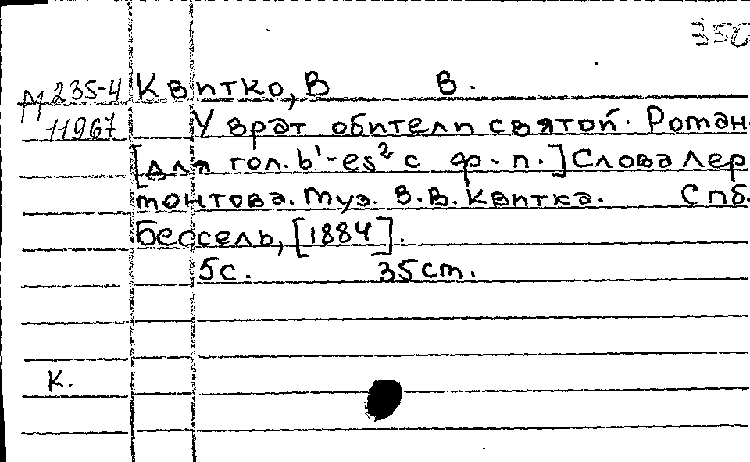 350
М 235-4 Квитко, В В.
11967 У врат обители святой. Роман
[для гол. b¹-es² с ф.-п.] Слова Лер
монтова. Муз. В.В. Квитка. Спб.
Бессель, [1884].
5с. 35cm.
К.